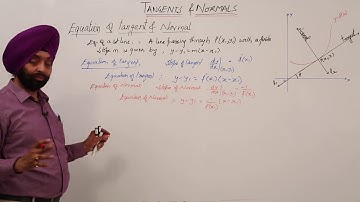 TANGENTS & NORMALS
Equation of tangent & Normal
Eq. of a st. line : A line passing through P(x₁,y₁) with a finite
slope m is given by, y-y₁ = m(x-x₁)
Equation of tangent, Slope of tangent dy/dx](x₁,y₁) = f'(x₁)
Equation of tangent : y-y₁ = f'(x₁)(x-x₁)
Equation of Normal Slope of Normal
Equation of Normal : y-y₁ = -1/f'(x₁) (x-x₁)
Normal
y=f(x)
tangent
P(x₁,y₁)